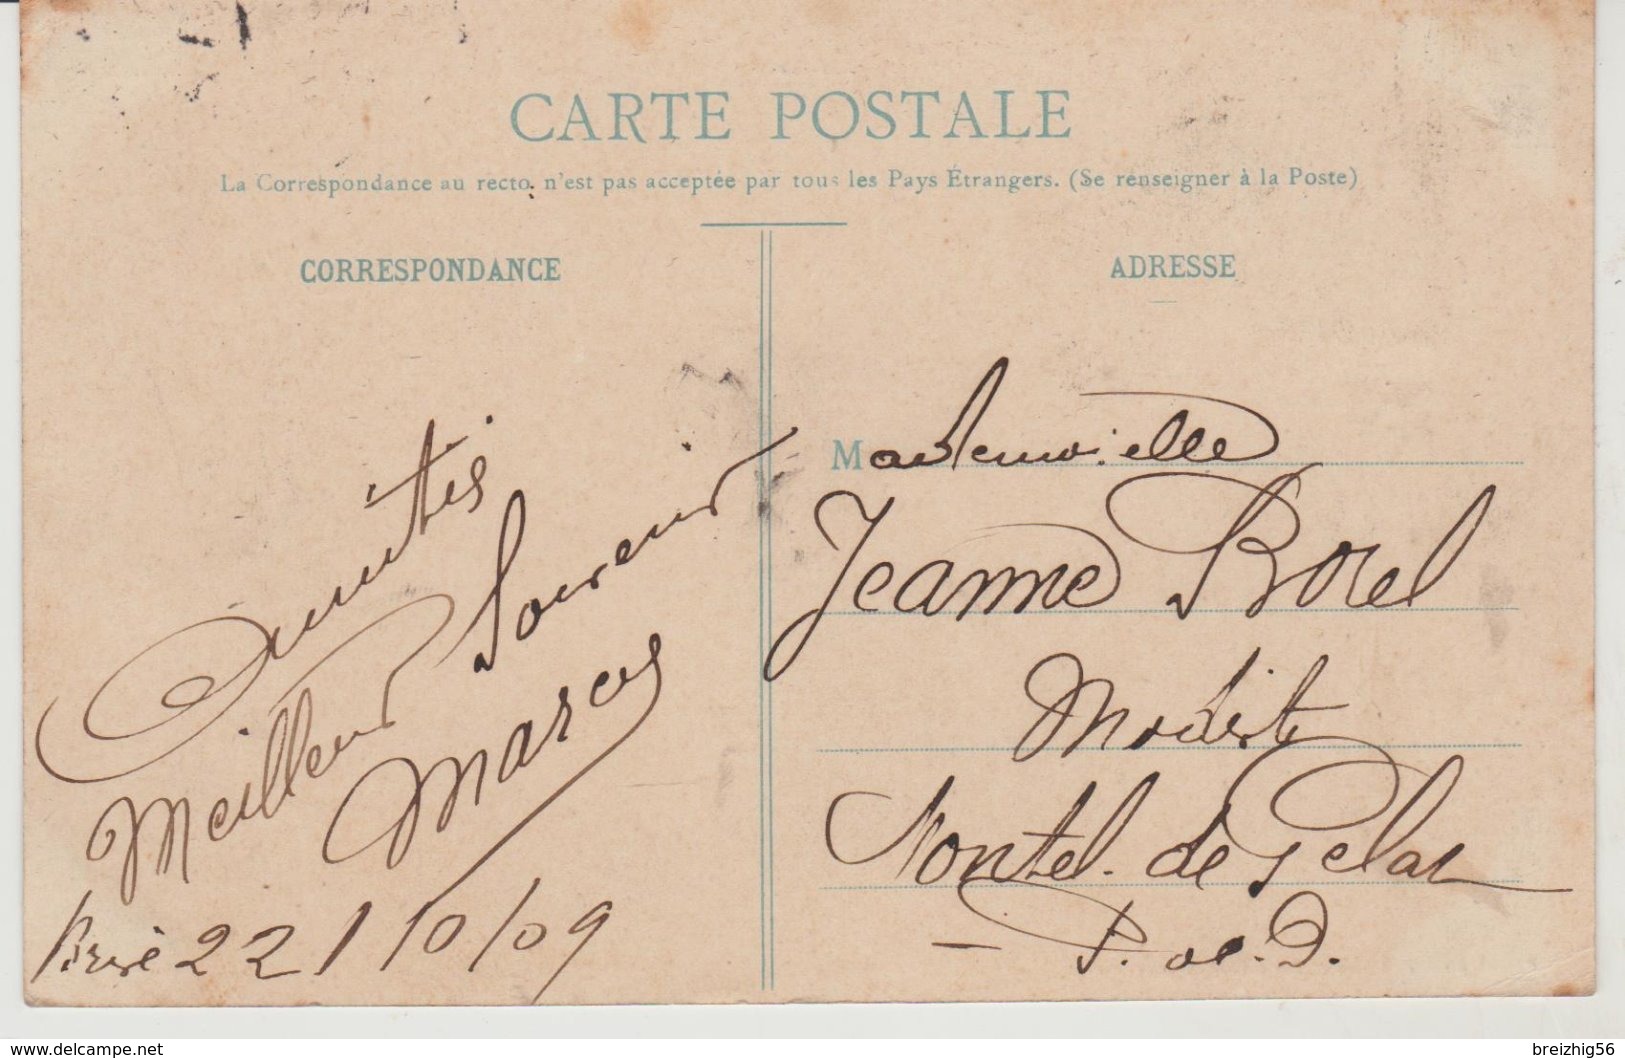 CARTE POSTALE
La Correspondance au recto, n'est pas acceptée par tous les Pays Étrangers. (Se renseigner à la Poste)
CORRESPONDANCE
Amitiés
Meilleur Souvenir
Marcus
22/10/09
ADRESSE
Mademoiselle
Jeanne Borel
Modiste
Montel. de Gelat
P. de. D.
www.delcampe.net
breizhig56